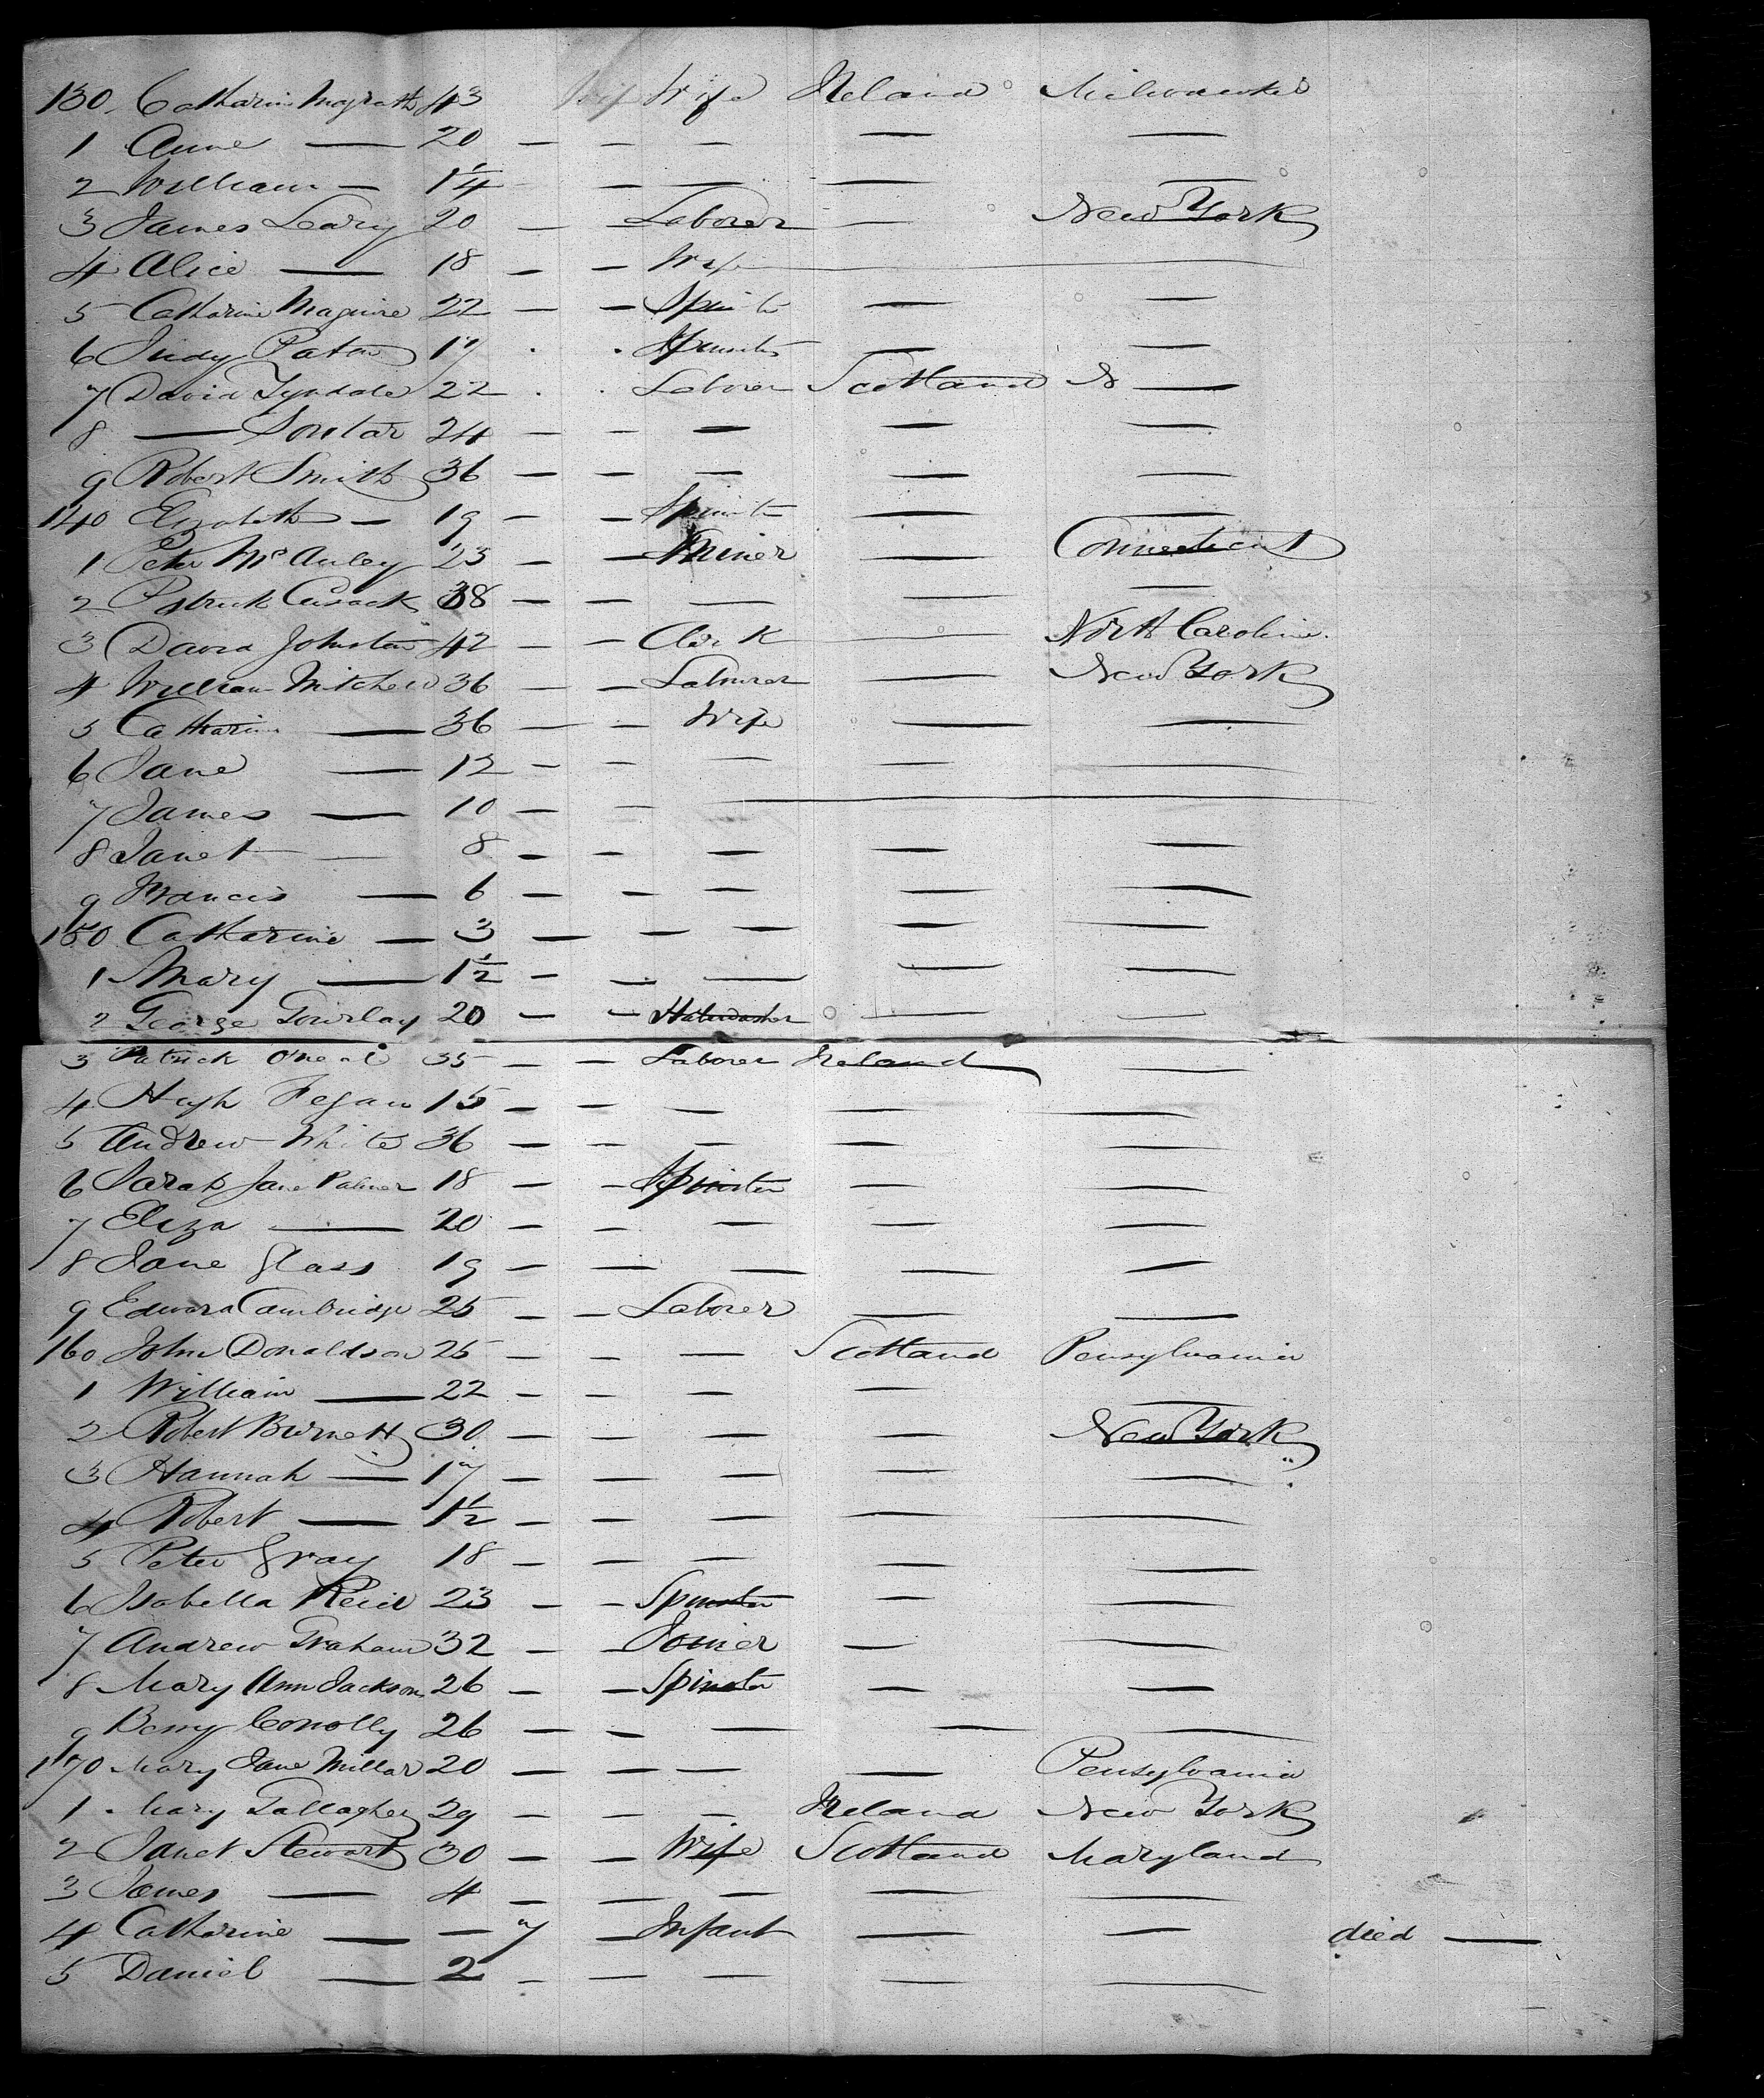 130 Catharine Magrath 43 Wife Ireland Milwaukee
1 Anne — 20 — — — — —
2 William — 1 1/4 — — — — —
3 James Leary 20 — — Laborer — New York
4 Alice — 18 — — Wife —
5 Catharine Maguire 22 — — Spinster — —
6 Judy Paton 17 . . Spinster — —
7 David Tyndale 22 . . Laborer Scotland N —
8 — Soutar 24 — — — — —
9 Robert Smith 36 — — — — —
140 Elizabeth — 19 — — Spinster — —
1 Peter McAuley 23 — — Miner — Connecticut
2 Patrick Cusack 38 — — — — —
3 David Johnston 42 — — Clerk — North Carolina
4 William Mitchell 36 — — Laborer — New York
5 Catharine — 36 — — Wife — —
6 Jane — 12 — — — — —
7 James — 10 — — —
8 Janet — 8 — — — — —
9 Francis — 6 — — — — —
150 Catharine — 3 — — — — —
1 Mary — 1 1/2 — — — — —
2 George Gourlay 20 — — — —
3 Patrick O'Neal 35 — — Laborer Ireland —
4 Hugh Fegan 15 — — — — —
5 Andrew White 36 — — — — —
6 Sarah Jane Palmer 18 — — Spinster — —
7 Eliza — 20 — — — — —
8 Jane Glass 19 — — — — —
9 Edward Cambridge 25 — — Laborer — —
160 John Donaldson 25 — — — Scotland Pensylvania
1 William — 22 — — — — —
2 Robert Burnett 30 — — — — New York
3 Hannah — 17 — — — — —
4 Robert — 1 1/2 — — — — —
5 Peter Gray 18 — — — — —
6 Isabella Reid 23 — — Spinster — —
7 Andrew Graham 32 — — Joiner — —
8 Mary Ann Jackson 26 — — Spinster — —
9 Conolly 26 — — — — —
170 Mary Jane Millar 20 — — — — Pensylvania
1 Mary Gallagher 29 — — — Ireland New York
2 Janet Stewart 30 — — Wife Scotland Maryland
3 James — 4 — — — — —
4 Catharine — — 7 — Infant — — died —
5 Daniel — 2 — — — — —